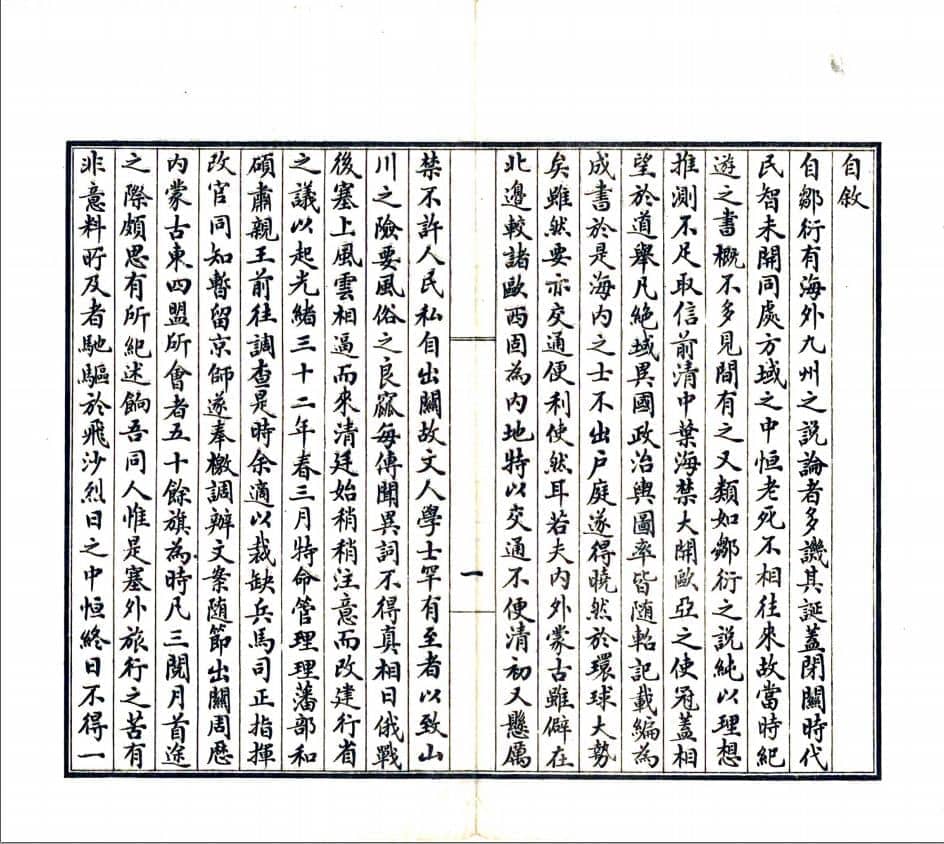 自敘
自鄒衍有海外九州之說論者多譏其誕蓋閉關時代
民智未開同處方域之中恒老死不相往來故當時紀
遊之書概不多見間有之又類如鄒衍之說純以理想
推測不足取信前清中葉海禁大開歐亞之使冠蓋相
望於道舉凡絕域異國政治輿圖率皆随軺記載編為
成書於是海内之士不出户庭遂得曉然於環球大勢
矣雖然要亦交通便利使然耳若夫内外蒙古雖僻在
北邊較諸歐西固為内地特以交通不便清初又懸厲
一
禁不許人民私自出關故文人學士罕有至者以致山
川之險要風俗之良窳每傳聞異詞不得真相日俄戰
後塞上風雲相逼而來清廷始稍稍注意而改建行省
之議以起光緒三十二年春三月特命管理理藩部和
碩肅親王前往調查是時余適以裁缺兵馬司正指揮
改官同知暫留京師遂奉檄調辦文案随節出關周歷
内蒙古東四盟所會者五十餘旗為時凡三閱月首途
之際頗思有所紀述餉吾同人惟是塞外旅行之苦有
非意料所及者馳驅於飛沙烈日之中恒終日不得一